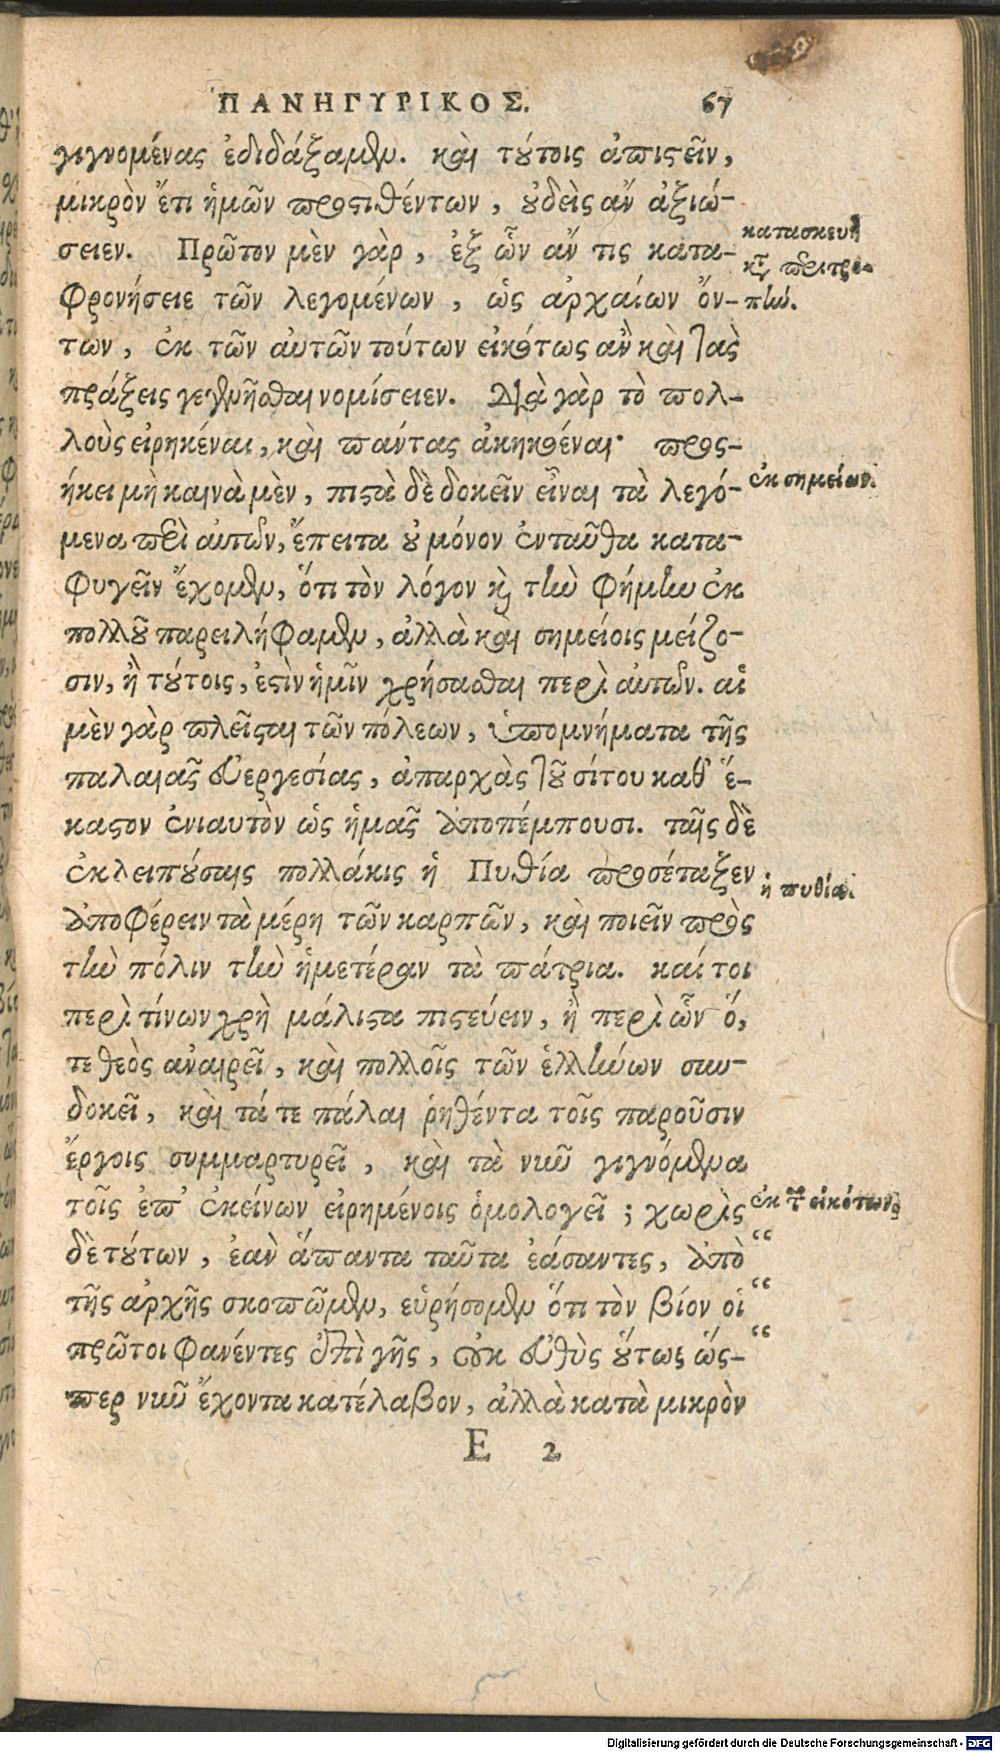 ΠΑΝΗΓΥΡΙΚΟΣ. 67
γιγνομένας ἐδιδάξαμεν. καὶ τούτοις ἀπιστεῖν,
μικρὸν ἔτι ἡμῶν προστιθέντων, οὐδεὶς ἂν ἀξιώ-
σειεν. Πρῶτον μὲν γὰρ, ἐξ ὧν ἄν τις κατα-
φρονήσειε τῶν λεγομένων, ὡς ἀρχαίων ὄν-
των, ἐκ τῶν αὐτῶν τούτων εἰκότως ἂν καὶ τὰς
πράξεις γεγενῆσθαι νομίσειεν. Διὰ γὰρ τὸ πολ-
λοὺς εἰρηκέναι, καὶ πάντας ἀκηκοέναι· προς-
ήκει μὴ καινὰ μὲν, πιστὰ δὲ δοκεῖν εἶναι τὰ λεγό-
μενα περὶ αὐτῶν, ἔπειτα οὐ μόνον ἐνταῦθα κατα-
φυγεῖν ἔχομεν, ὅτι τὸν λόγον καὶ τὴν φήμην ἐκ
πολλοῦ παρειλήφαμεν, ἀλλὰ καὶ σημείοις μείζο-
σιν, ἢ τούτοις, ἐστὶν ἡμῖν χρήσασθαι περὶ αὐτῶν. αἱ
μὲν γὰρ πλεῖσται τῶν πόλεων, ὑπομνήματα τῆς
παλαιᾶς εὐεργεσίας, ἀπαρχὰς τοῦ σίτου καθ' ἕ-
καστον ἐνιαυτὸν ὡς ἡμᾶς ἀποπέμπουσι. ταῖς δὲ
ἐκλειπούσαις πολλάκις ἡ Πυθία προσέταξεν
ἀποφέρειν τὰ μέρη τῶν καρπῶν, καὶ ποιεῖν πρὸς
τὴν πόλιν τὴν ἡμετέραν τὰ πάτρια. καί τοι
περὶ τίνων χρὴ μάλιστα πιστεύειν, ἢ περὶ ὧν ὅ,
τε θεὸς ἀναιρεῖ, καὶ πολλοῖς τῶν ἑλλήνων συν-
δοκεῖ, καὶ τά τε πάλαι ῥηθέντα τοῖς παροῦσιν
ἔργοις συμμαρτυρεῖ, καὶ τὰ νῦν γιγνόμενα
τοῖς ἐπ' ἐκείνων εἰρημένοις ὁμολογεῖ; χωρὶς
δὲ τούτων, ἐὰν ἅπαντα ταῦτα ἐάσαντες, ἀπὸ “
τῆς ἀρχῆς σκοπῶμεν, εὑρήσομεν ὅτι τὸν βίον οἱ “
πρῶτοι φανέντες ἐπὶ γῆς, οὐκ εὐθὺς οὕτως ὥς- “
περ νῦν ἔχοντα κατέλαβον, ἀλλὰ κατὰ μικρὸν
E 2
κατασκευὴ
καὶ περιτρο-
πήν.
ἐκ σημείων.
ἡ πυθία.
ἐκ τῶν εἰκότων
Digitalisierung gefördert durch die Deutsche Forschungsgemeinschaft - DFG